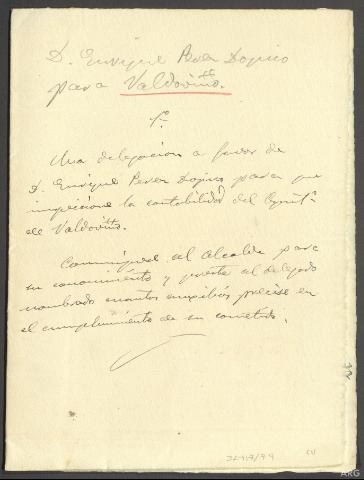 D. Enrique Perez Dopico
para Valdoviño.
1º
Una delegacion a favor de
D. Enrique Perez Dopico para que
inspeccione la contabilidad del Ayuntº
de Valdoviño.
Comuníquese al Alcalde para
su conocimiento y preste al delegado
nombrado cuantos auxilios precise en
el cumplimiento de su cometido.
ARG